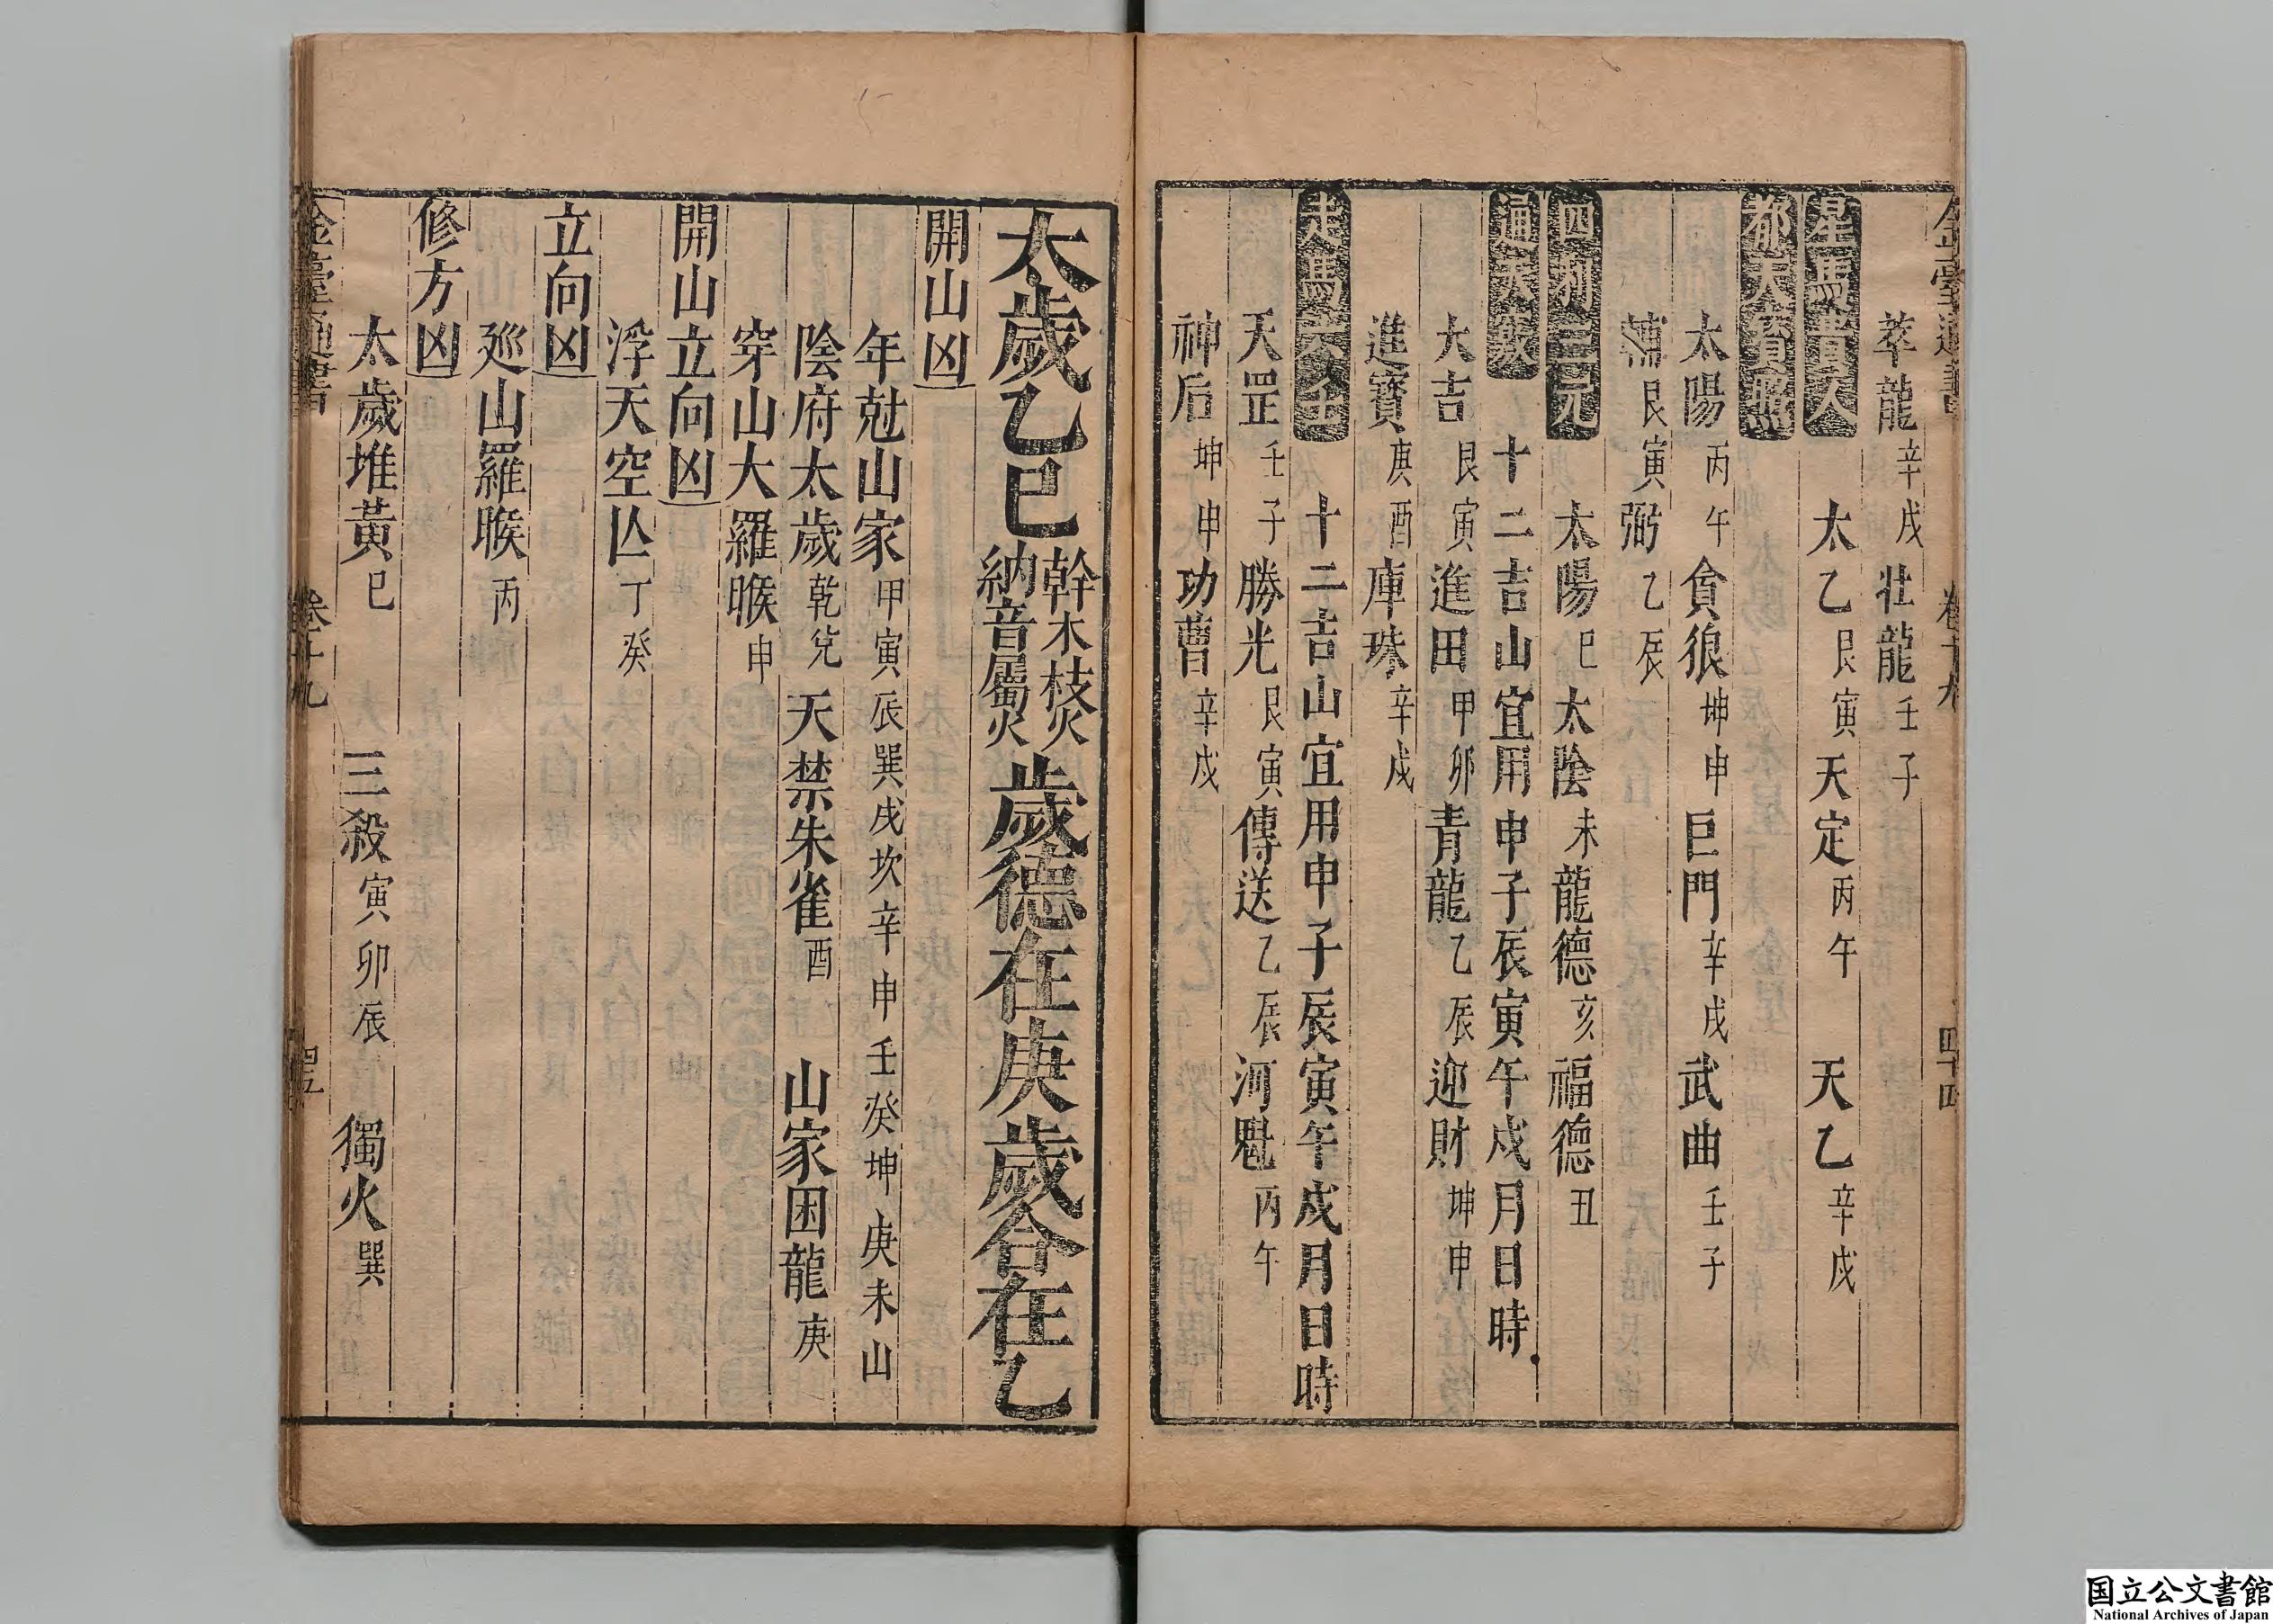 萃龍辛戌壯龍壬子
星馬貴人 太乙艮寅天定丙午 天乙辛戌
都天寶照
太陽丙午貪狼坤申巨門辛戌武曲壬子
輔艮寅弼乙辰
四利三元 太陽巳太陰未龍德亥福德丑
通天竅 十二吉山宜用申子辰寅午戌月日時
大吉艮寅進田甲卯青龍乙辰迎財坤申
進寶庚酉庫珠辛戌
走馬六壬 十二吉山宜用申子辰寅午戌月日時
天罡壬子勝光艮寅傳送乙辰河魁丙午
神后坤申功曹辛戌
太歲乙巳 幹木枝火 納音屬火 歲德在庚歲合在乙
開山凶
年尅山家甲寅辰巽戌坎辛申壬癸坤庚未山
陰府太歲乾兌 天禁朱雀酉 山家困龍庚
穿山大羅睺申
開山立向凶
浮天空亾丁癸
立向凶
廵山羅睺丙
修方凶
太歲堆黃巳 三殺寅卯辰 獨火巽
金臺通書 卷十九
国立公文書館
National Archives of Japan